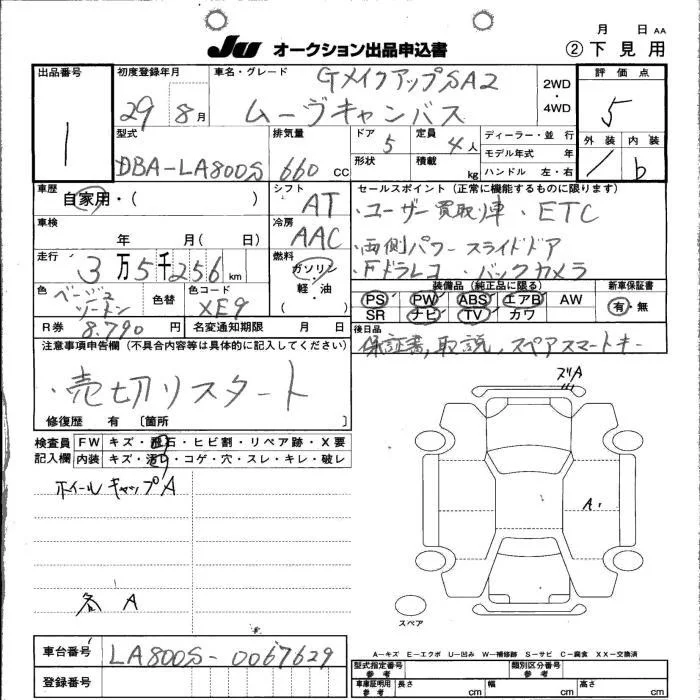 月 日 AA
JU オークション出品申込書
② 下見用
出品番号
1
初度登録年月
29 8月
車名・グレード
GメイクアップSA2
ムーヴキャンバス
2WD・4WD
評価点
5
外装 内装
b
型式
DBA-LA800S
排気量
660 CC
ドア 5
定員 4人
形状
積載 kg
ディーラー・並 行
モデル年式 年
ハンドル 左・右
車歴
自家用・( )
シフト
AT
セールスポイント (正常に機能するものに限ります)
・ユーザー買取車 ・ETC
・両側パワースライドドア
・Fドラレコ ・バックカメラ
車検
年 月( 日)
冷房
AAC
走行
3万5千256km
燃料
ガソリン・軽・油
色
ベージュ
ツートン
色替
色コード
XE9
装備品 (純正品に限る)
PS PW ABS エアB AW
SR ナビ TV カワ
新車保証書
有・無
R券 8.790円
名変通知期限 月 日
後日品
保証書,取説,スペアスマートキー
注意事項申告欄 (不具合内容等は具体的に記入してください)
・売切リスタート
修復歴 有 [箇所 ]
検査員記入欄
FW キズ・飛石・ヒビ割・リペア跡・X要
内装 キズ・汚れ・コゲ・穴・スレ・キレ・破レ
ホイールキャップA
各 A
A
スペア
A-キズ E-エクボ U-凹み W-補修跡 S-サビ C-腐食 XX-交換済
車台番号
LA800S-0067629
登録番号
型式指定番号
参考
類別区分番号
参考
車庫証明用
参考
長さ cm
幅 cm
高さ cm